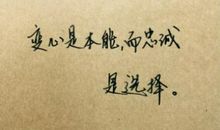 变心是本能,而忠诚
是选择。